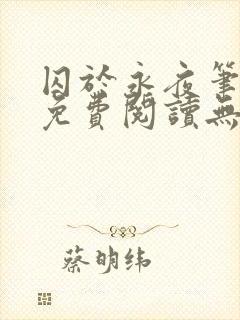 囚於永夜筆
免費閱讀無
蔡明纬